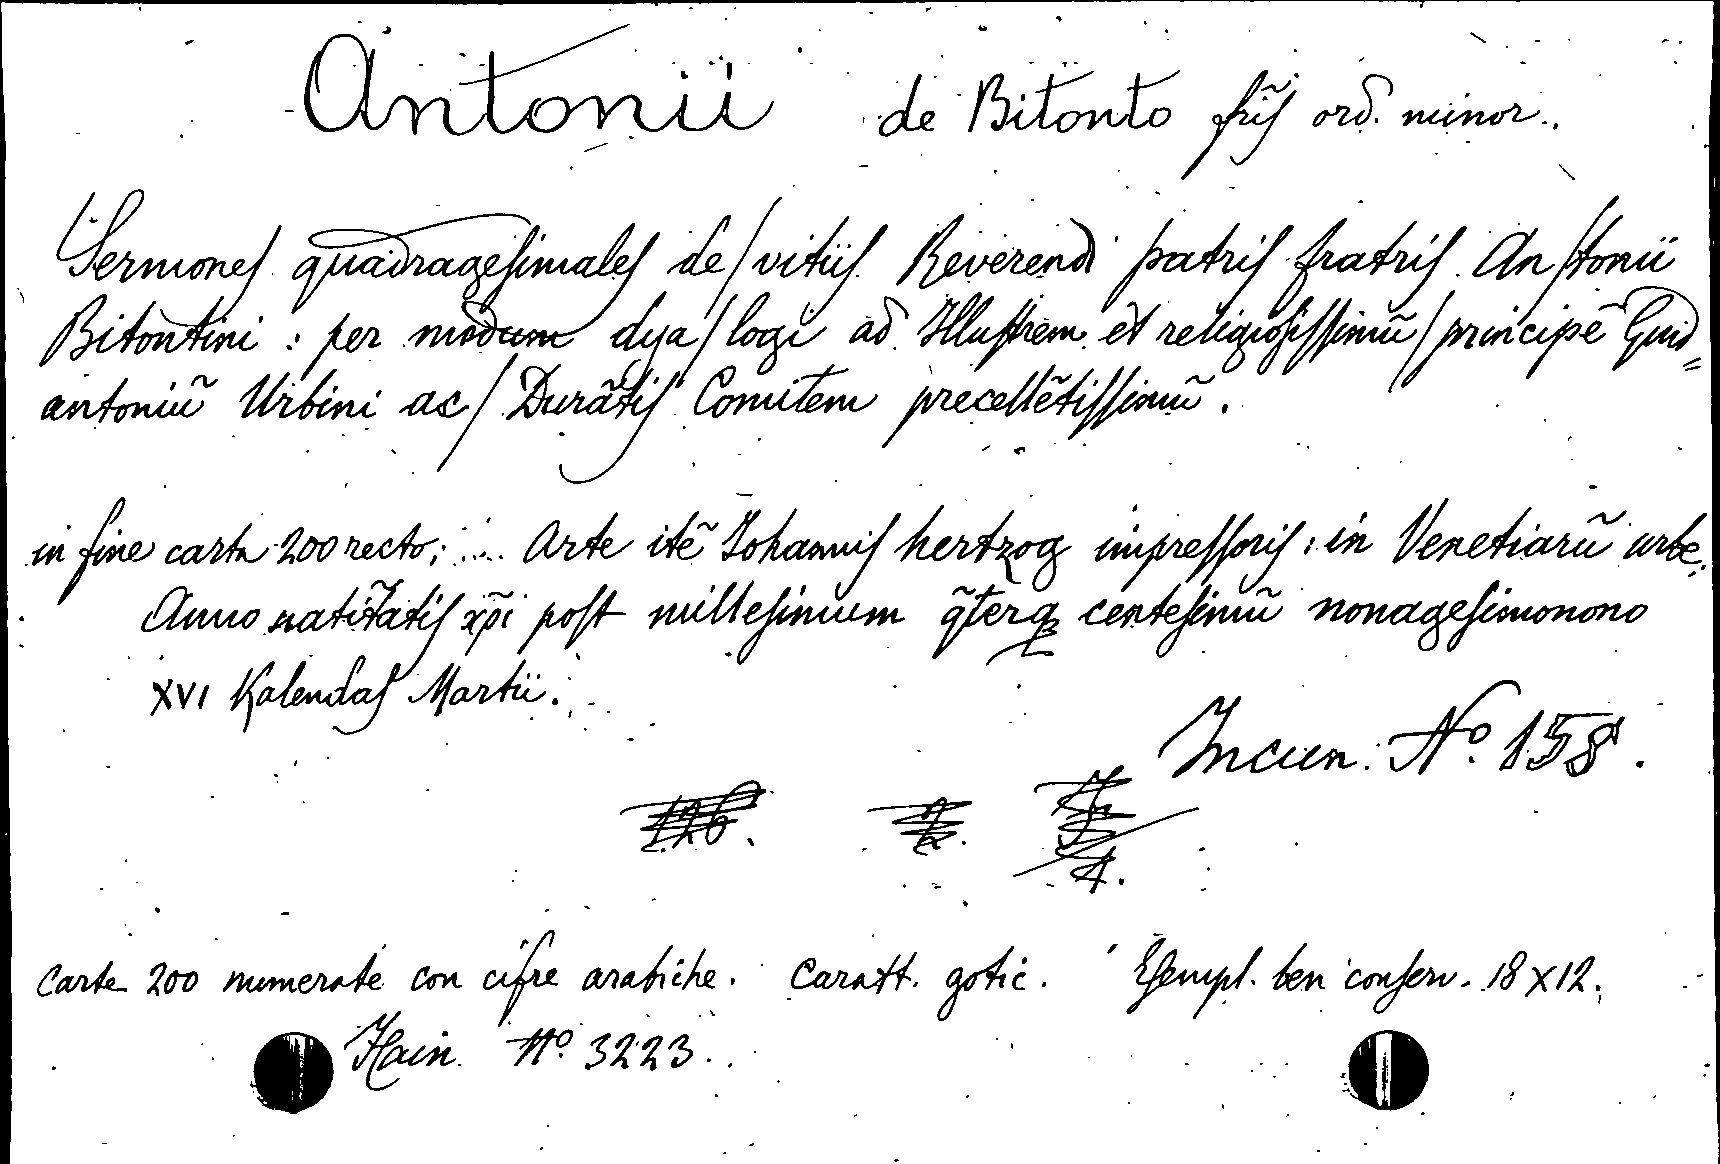 Antonii de Bitonto fr̃is ord. minor.
Sermones quadragesimales de/vitiis Reverendi patris fratris An/tonii
Bitontini : per modum dya/logi ad Illustrem et religiosissimũ/principẽ Guid=
antoniũ Urbini ac/Durãtis Comitem precellẽtissimũ.
in fine carta 200 recto; .... Arte itẽ Johannis hertzog impressoris : in Venetiarũ urbe.
Anno natiṽtatis xp̃i post millesimum q̃terq; centesimũ nonagesimonono
XVI Kalendas Martii.
Incun. Nº. 158.
126. 2. 4.
Carte 200 numerate con cifre arabiche. Caratt. gotic. Esempl. ben conserv. 18 x 12.
Hain Nº. 3223.